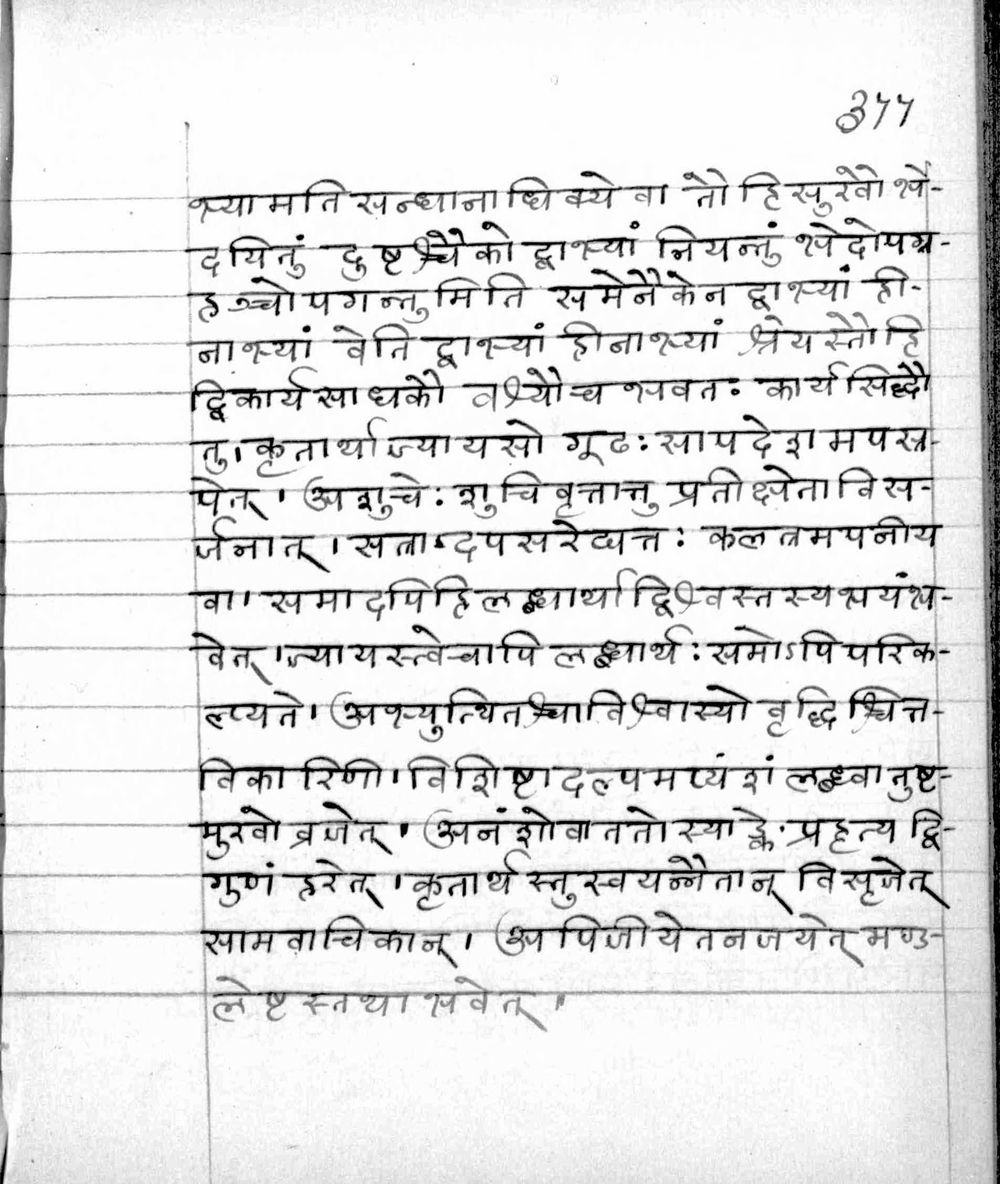 ३५५
भ्यामतिसन्धानाधिक्ये वा तौ हि सुखौ भे-
दयितुं दुष्टश्चैको द्वाभ्यां नियन्तुं भेदोपग्र-
हञ्चोपगन्तुमिति समेनैकेन द्वाभ्यां ही-
नाभ्यां वेति द्वाभ्यां हीनाभ्यां श्रेयस्तौ हि
द्विकार्यसाधकौ वश्यौ च भवतः कार्यसिद्धौ
तु। कृतार्थाज्यायसो गूढः सापदेशमपस्र-
पेत्। अशुचेः शुचिवृत्तात्तु प्रतीक्षेता विस-
र्जनात्। सत्रादपसरेद्यत्तः कलत्रमपनीय
वा। समादपि हि लब्धार्थाद्विश्वस्तस्य भयं भ-
वेत्। ज्यायस्त्वे चापि लब्धार्थः समोऽपि परिक-
ल्प्यते। अभ्युत्थितश्चाविश्वास्यो वृद्धिश्चित्त-
विकारिणी। विशिष्टादल्पमप्यंशं लब्ध्वा तुष्ट-
मुखो व्रजेत्। अनंशो वा ततोस्याङ्के प्रहृत्य द्वि-
गुणं हरेत्। कृतार्थस्तु स्वयन्नैतान् विसृजेत्
सामवाचिकान्। अपि जीयेत न जयेत् मण्ड-
लेष्टस्तथा भवेत्।